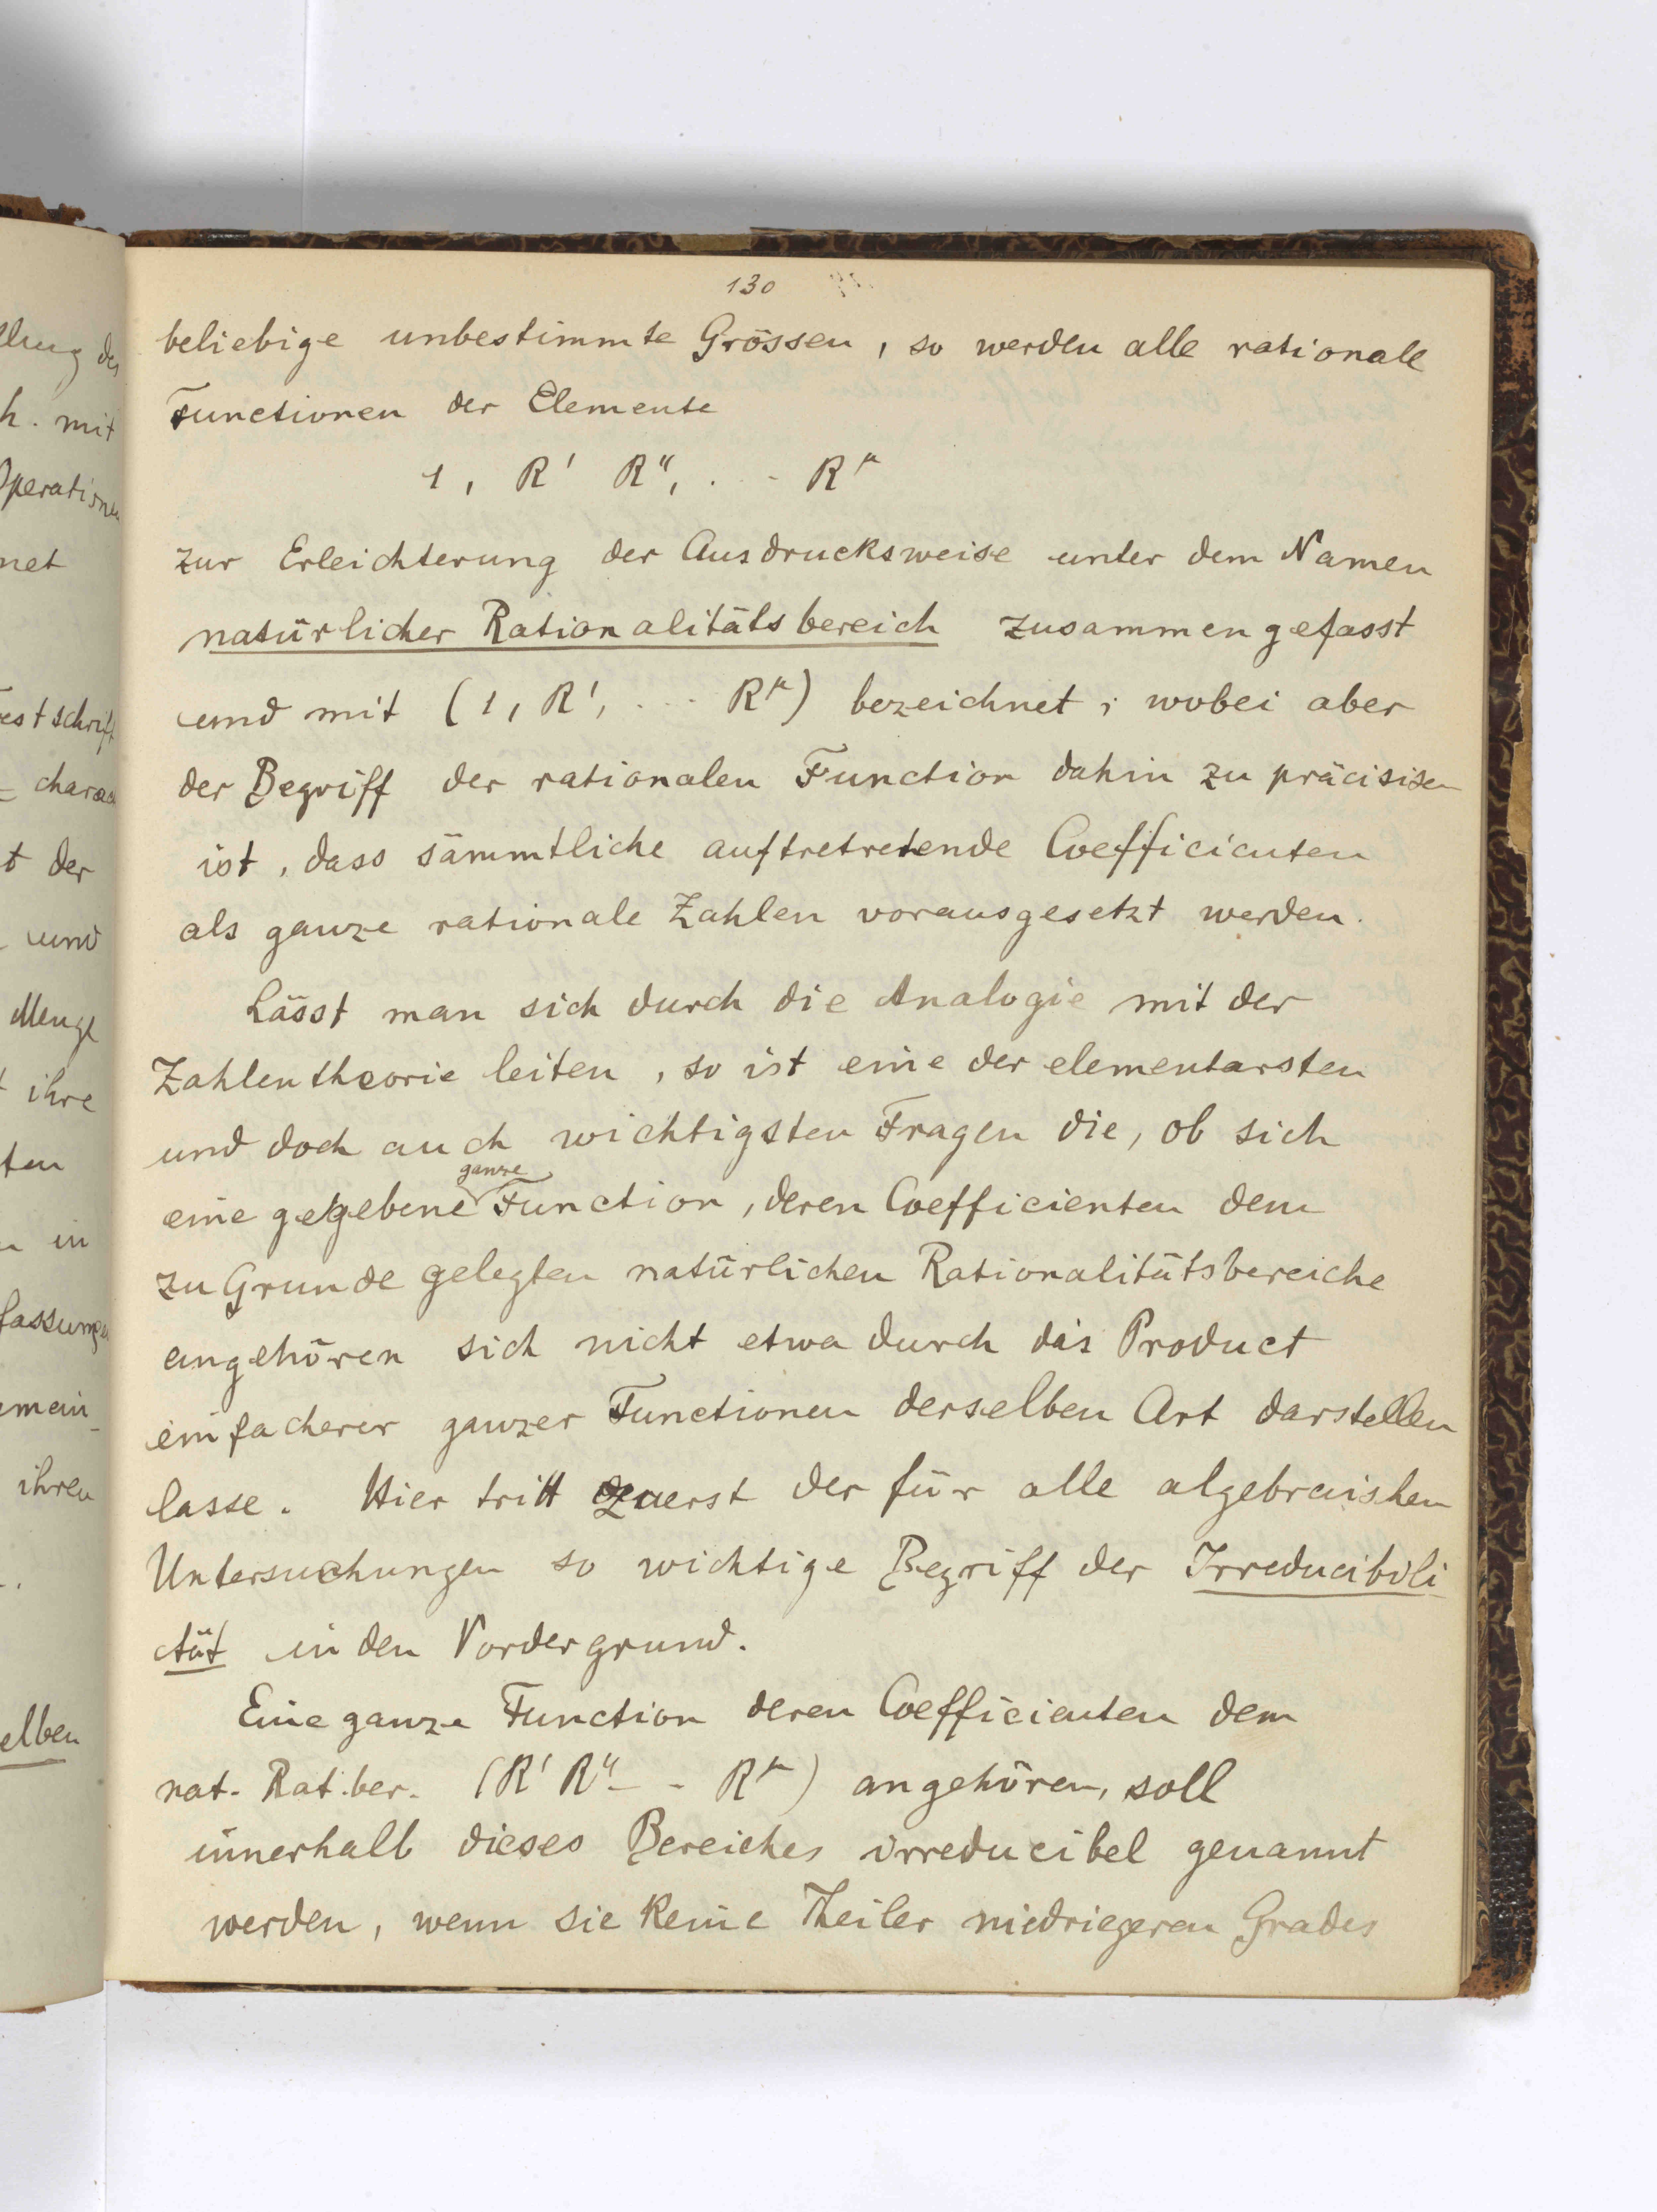 130
beliebige unbestimmte Grössen, so werden alle rationale
Functionen der Elemente
1, R' R'', . - R^μ
zur Erleichterung der Ausdrucksweise unter dem Namen
natürlicher Rationalitätsbereich zusammengefasst
und mit (1, R', . - - R^μ) bezeichnet; wobei aber
der Begriff der rationalen Function dahin zu präcisiren
ist, dass sämmtliche auftretretende Coefficienten
als ganze rationale Zahlen vorausgesetzt werden.
Lässt man sich durch die Analogie mit der
Zahlentheorie leiten, so ist eine der elementarsten
und doch auch wichtigsten Fragen die, ob sich
ganze
eine gegebene Function, deren Coefficienten dem
zu Grunde gelegten natürlichen Rationalitätsbereiche
angehören sich nicht etwa durch das Product
einfacherer ganzer Functionen derselben Art darstellen
lasse. Hier tritt zuerst der für alle algebraishen
Untersuchungen so wichtige Begriff der Irreducibili
tät in den Vordergrund.
Eine ganze Function deren Coefficienten dem
nat. Rat.ber. (R' R'' - - R^μ) angehören, soll
innerhalb dieses Bereiches irreducibel genannt
werden, wenn sie keine Theiler niedriegeren Grades
h. mit
net
t der
und
Menge
ihre
ten
in
ihren
elben